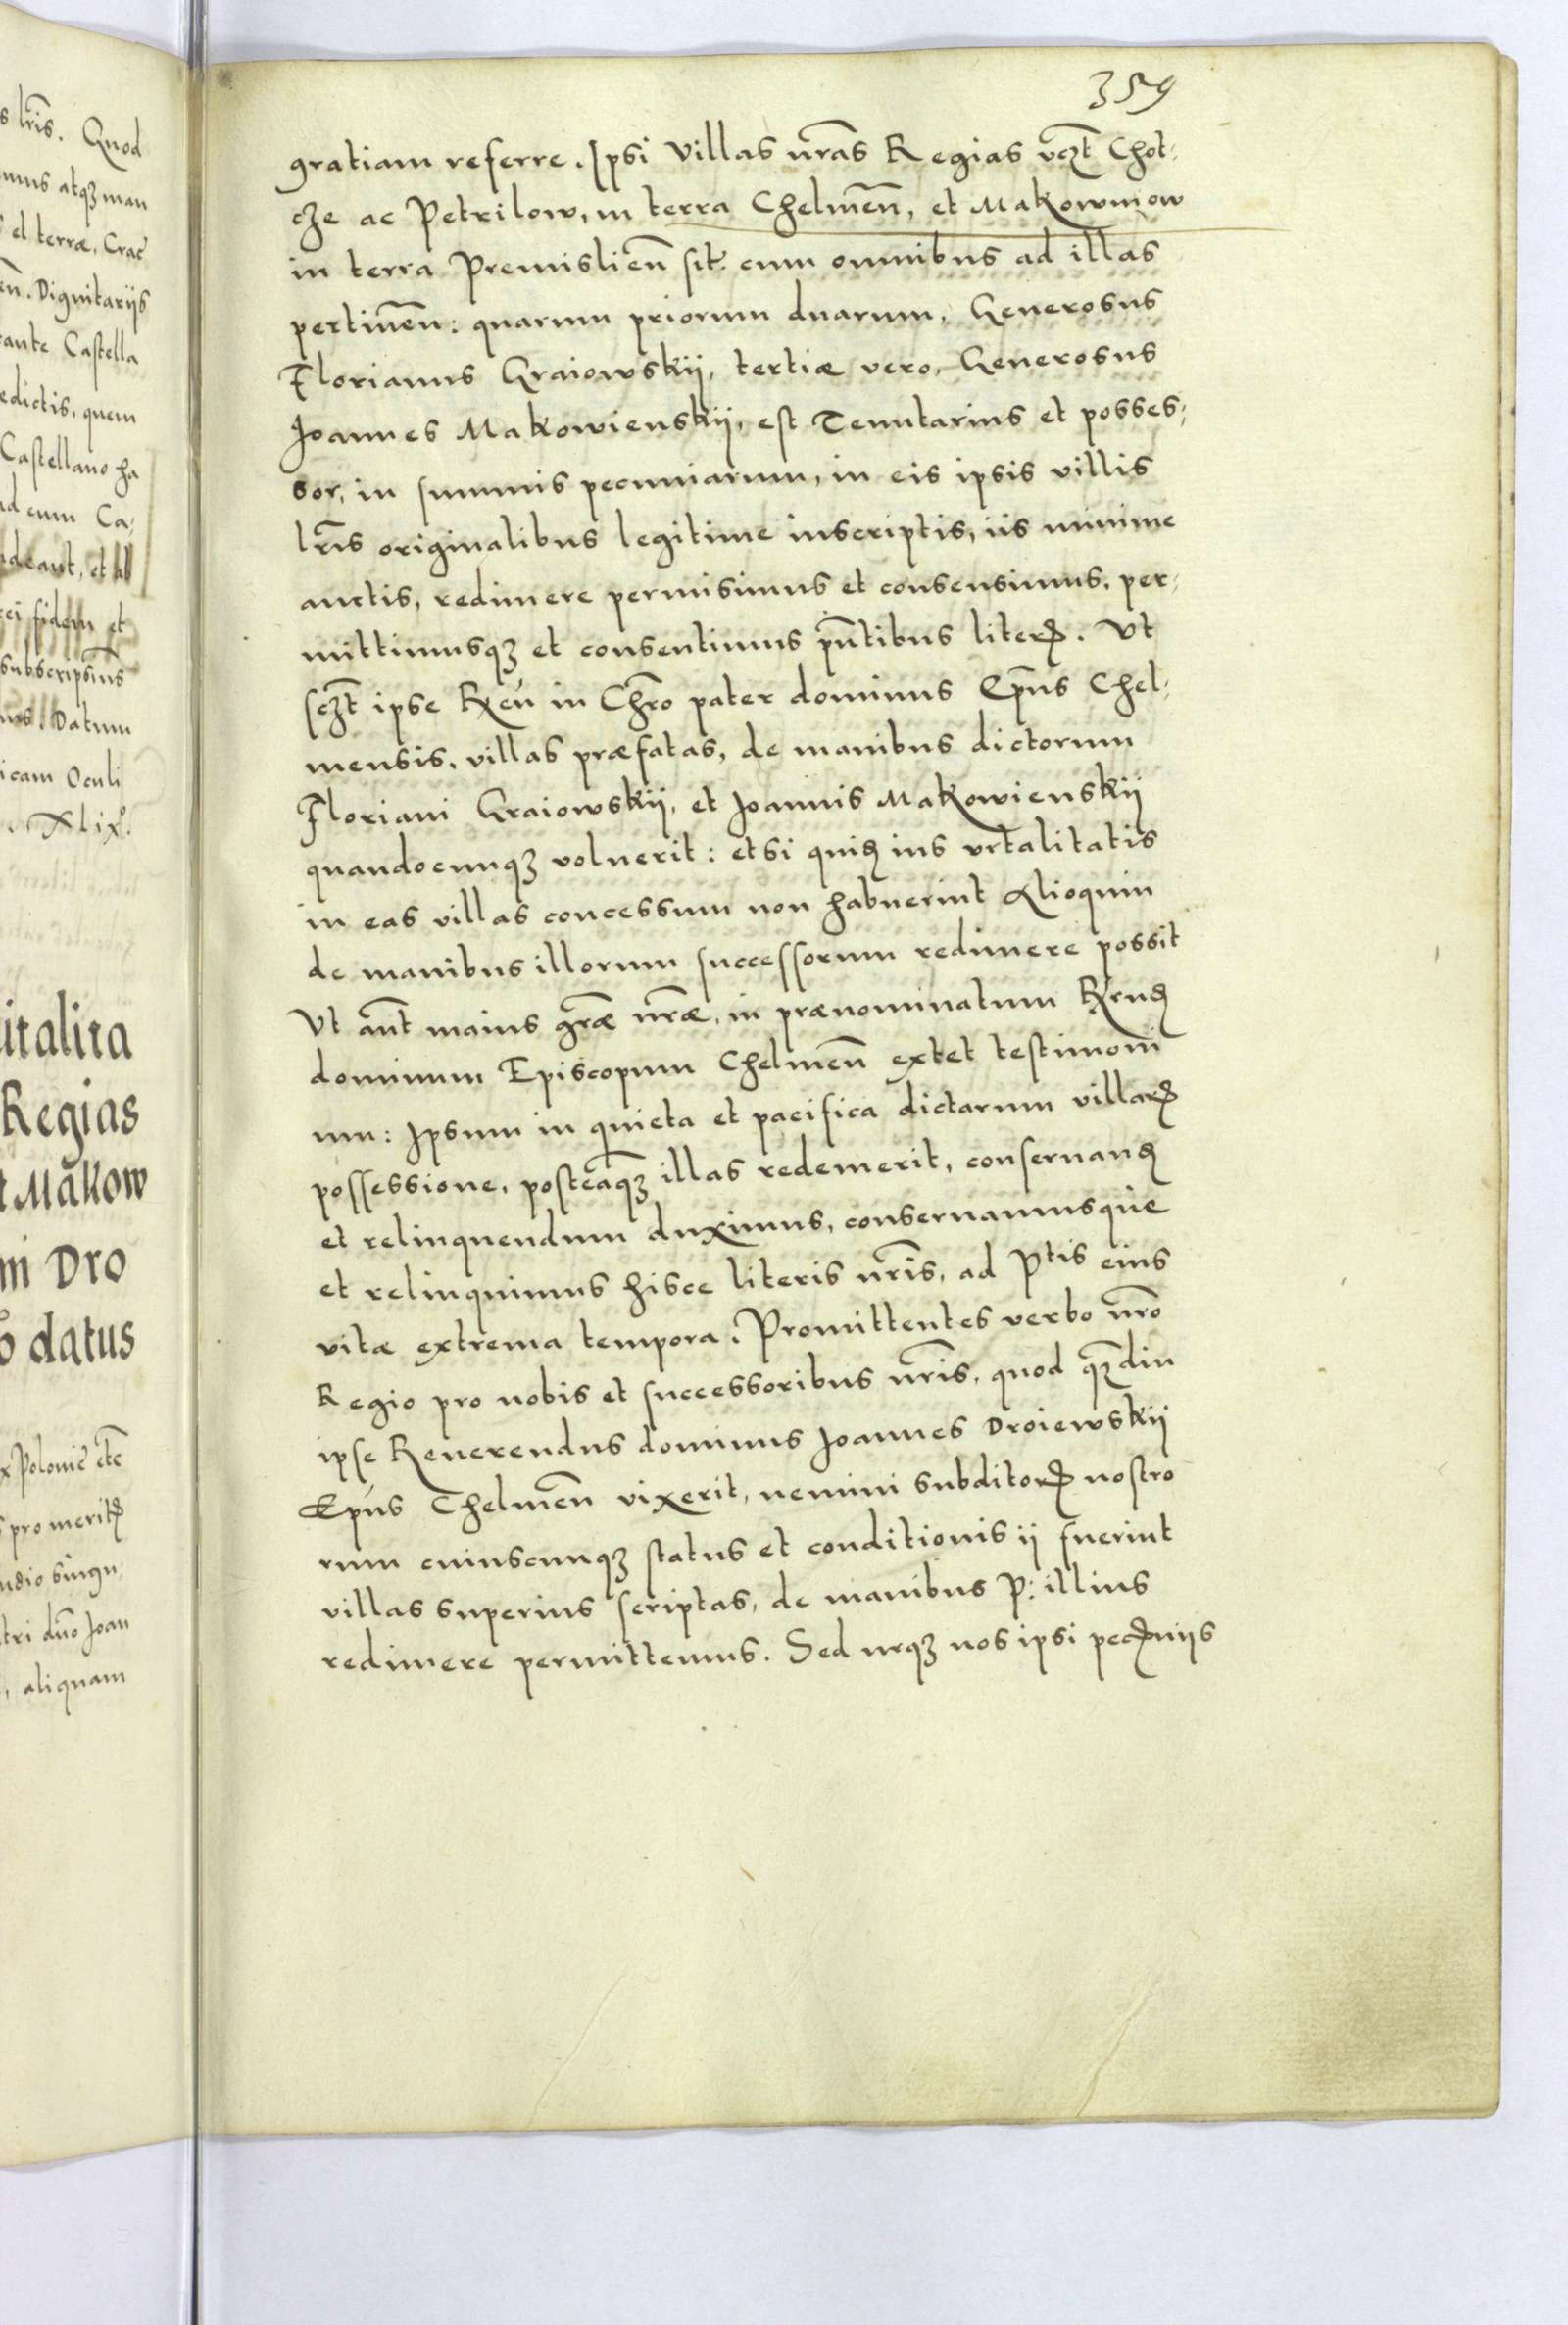 s lr̃is. Quod
mus atqꝫ man
et terræ, Crac̃
eñ. Dignitariis
rante Castella
edictis, quem
Castellano ha
ad eum Ca,
ndeant, et
rei fidem et
subscripsim̃s
mus. Datum
icam Oculi
. Xlixº.
uitalita
Regias
t Makow
ni Dro
o datus
x Poloniẽ etc̃
s pro meritꝭ
udio singu,
tri dño Joan
, aliquam
359
gratiam referre. Ipsi Villas nrãs Regias vꝫt Chot,
cze ac Petrilow, in terra Chelmeñ, et Makowniow
in terra Premislieñ sit. cum omnibus ad illas
pertineñ: quarum priorum duarum, Generosus
Florianus Graiowskij, tertiæ vero, Generosus
Joannes Makowienskij, est Tenutarius et posses,
sor, in summis pecuniarum, in eis ipsis villis
lr̃is originalibus legitime inscriptis, iis minime
auctis, redimere permisimus et consensimus, per,
mittimusqꝫ et consentimus pñtibus literꝭ. Vt
scꝫt ipse Reñ in Chrõ pater dominus Ep̃us Chel,
mensis, villas præfatas, de manibus dictorum
Floriani Graiowskij, et Joannis Makowienskij
quandocunqꝫ voluerit: etsi quiꝭ ius vitalitatis
in eas villas concessum non habuerint Alioquin
de manibus illorum successorum redimere possit
Vt aũt maius grãe nrãe, in prænominatum Rẽnꝭ
dominum Episcopum Chelmeñ extet testimoni
um: Ipsum in quieta et pacifica dictarum villarꝭ
possessione, posteaqꝫ illas redemerit, conseruanꝭ
et relinquendum duximus, conseruamusque
et relinquimus hisce literis nrĩs, ad Ptis eius
vitæ extrema tempora. Promittentes verbo nrõ
Regio pro nobis et successoribus nrĩs, quod qꝫdiu
ipse Reuerendus dominus Joannes Droiewskij
Ep̃us Chelmeñ vixerit, nemini subditorꝭ nostro
rum cuiuscunqꝫ status et conditionis ii fuerint
villas superius scriptas, de manibus P: illius
redimere permittemus. Sed neqꝫ nos ipsi pecꝭniis